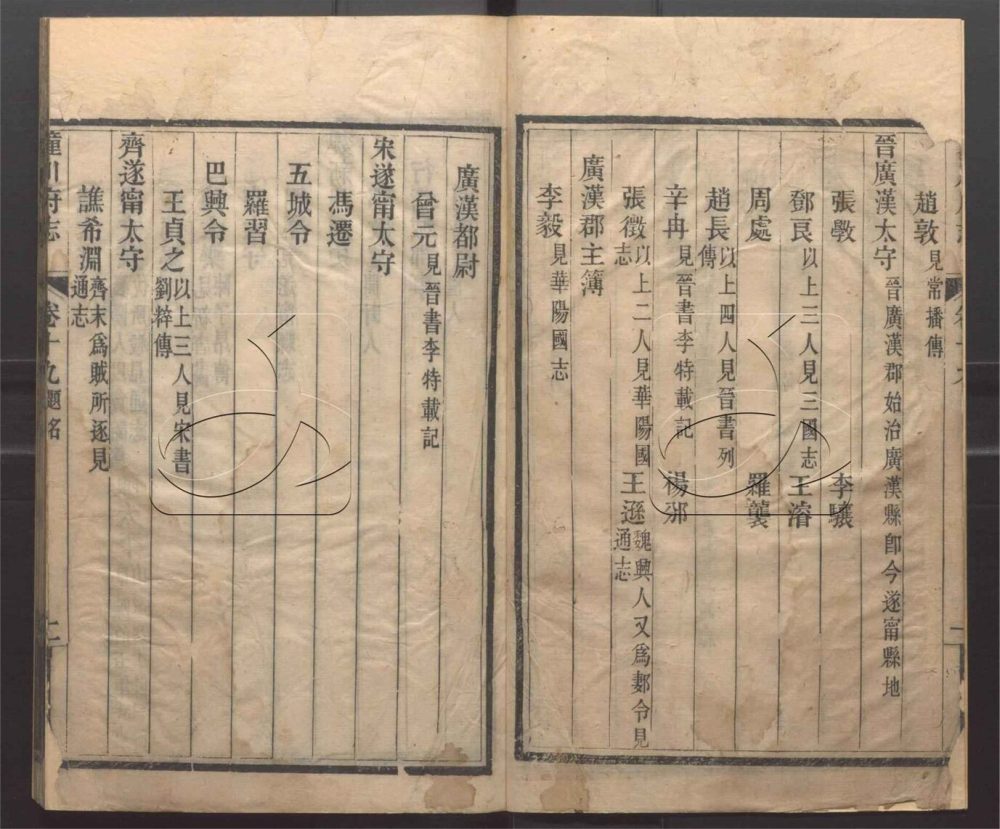 趙敦見常播傳
晉廣漢太守晉廣漢郡始治廣漢縣卽今遂甯縣地
張斆 李驤
鄧艮以上三人見三國志 王濬
周處 羅襲
趙長以上四人見晉書列傳
辛冉見晉書李特載記 楊邠
張徵以上二人見華陽國志 王遜魏興人又爲郪令見通志
廣漢郡主簿
李毅見華陽國志
廣漢都尉
曾元見晉書李特載記
宋遂甯太守
馮遷
五城令
羅習
巴興令
王貞之以上三人見宋書劉粹傳
齊遂甯太守
譙希淵齊末爲賊所逐見通志
潼川府志 卷十九題名 二